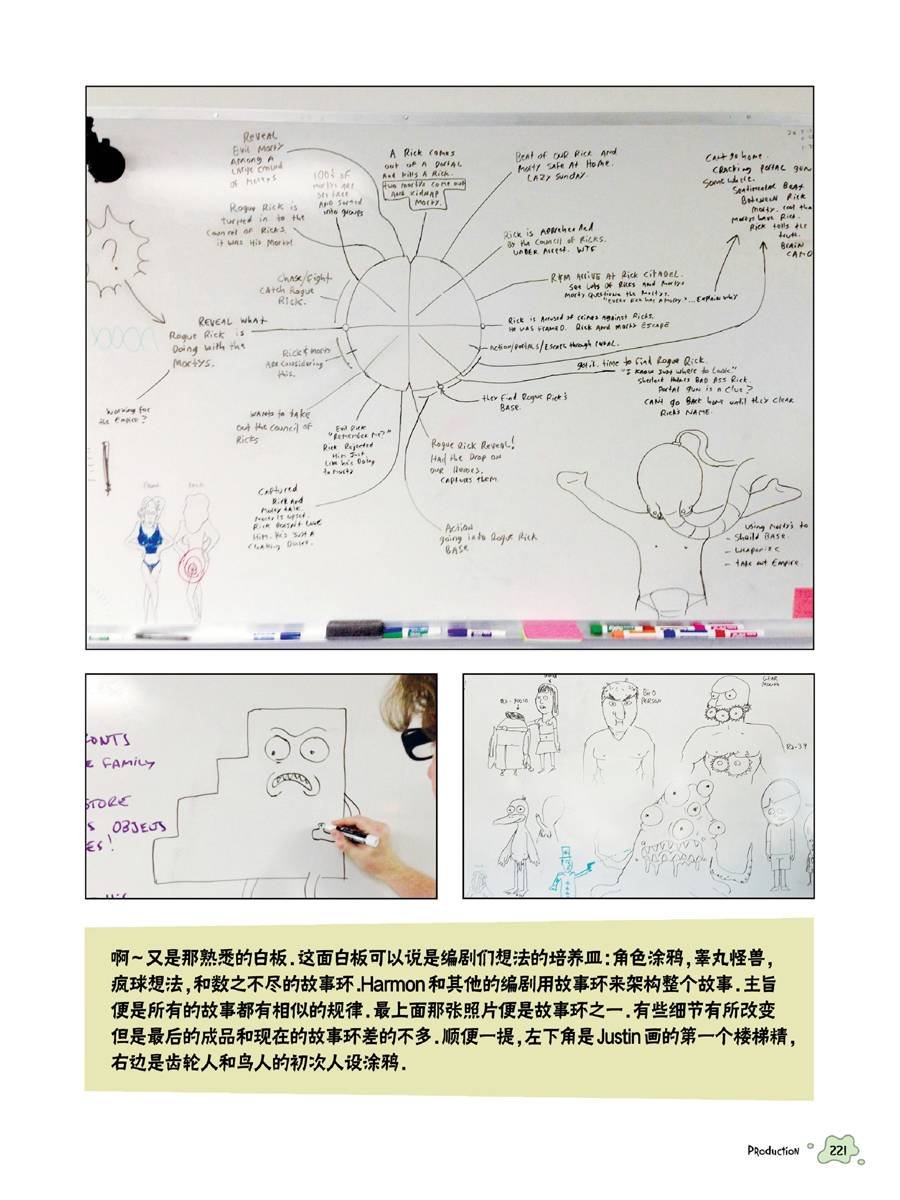 REVEAL
Evil Morty
Among A
Large crowd
of Mortys
100% of
Mortys are
set free
And sorted
into groups
A Rick comes
out of A portal
And kills A Rick.
two mortys come out
And kidnap
Morty.
Beat of our Rick and
Morty Safe At Home.
Lazy Sunday.
Can't go home.
Cracking portal gun
Some where.
Sentimental Beat
Between Rick
Morty.
Mortys have Rick.
Rick tells the
truth.
BRAIN
CAMO
?
Rogue Rick is
turned in to the
Council of Ricks.
it was His Morty!
Rick is Apprehended
By the Council of Ricks.
UNDER Arrest. WTF
Chase/Fight
Catch Rogue
Rick.
R&M Arrive At Rick Citadel.
See lots of Ricks and Mortys
Morty questions the Mortys.
"Every Rick has A Morty."...Explain why
REVEAL what
Rogue Rick is
Doing with the
Mortys.
Rick is Accused of crimes Against Ricks.
He was framed. Rick And Morty Escape
Action/Portals/Escape through portal.
Rick & Morty
Are considering
this.
got it. time to find Rogue Rick.
"I know just where to look."
Sherlock Holmes BAD ASS Rick.
Portal gun is A clue?
CAN'T go Back home until they clear
Rick's NAME.
they find Rogue Rick's
BASE.
Working for
the Empire?
Wants to take
out the council of
Ricks
Evil Rick
"Remember Me?"
Rick Rejected
Him Just
Like he's Doing
to Morty
Rogue Rick Reveal!
Has the Drop on
our Heroes.
Captures them.
Captured
Rick and
Morty talk.
Morty is upset.
Rick doesn't love
Him. He's Just A
Cloaking Device.
Action
going into Rogue Rick
BASE
Front
Back
Using Morty's to
- Sheild BASE.
- weaponize
- take out Empire.
FAMILY
STORE
OBJECTS
BIRD
PERSON
GEAR
啊～又是那熟悉的白板.这面白板可以说是编剧们想法的培养皿:角色涂鸦,睾丸怪兽,
疯球想法,和数之不尽的故事环.Harmon 和其他的编剧用故事环来架构整个故事.主旨
便是所有的故事都有相似的规律.最上面那张照片便是故事环之一.有些细节有所改变
但是最后的成品和现在的故事环差的不多.顺便一提,左下角是 Justin 画的第一个楼梯精,
右边是齿轮人和鸟人的初次人设涂鸦.
Production
221